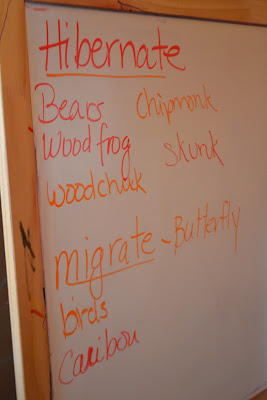 Hibernate
Bears Chipmonk
Wood frog Skunk
woodchuck
migrate - Butterfly
birds
Caribou